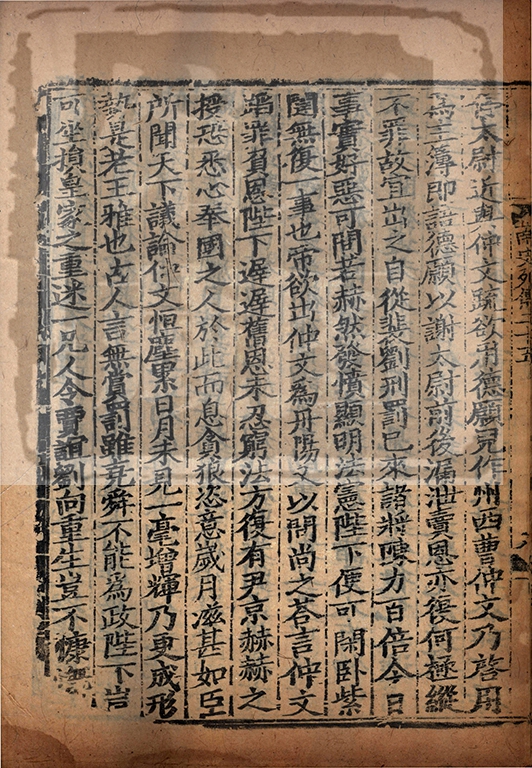 停太尉近與仲文疏欲用德願兒作州西曹仲文乃啓用
爲主簿即語德願以謝太尉前後漏泄賣恩亦復何極縱
不罪故宜出之自從裴劉刑罰已來諸將陳力百倍今日
事實好惡可問若赫然發憤顯明法憲陛下便可閑卧紫
闥無復一事也帝欲出仲文爲丹陽又以問尚之荅言仲文
蹈罪負恩陛下遲遲舊恩未忍窮法方復有尹京赫赫之
授恐悉心奉國之人於此而息貪狼恣意歲月滋甚如臣
所聞天下議論仲文恒塵累日月未見一毫增輝乃更成形
勢是老王雅也古人言無賞罰雖堯舜不能爲政陛下豈
可坐損皇家之重迷一凡人令賈誼劉向重生豈不慷